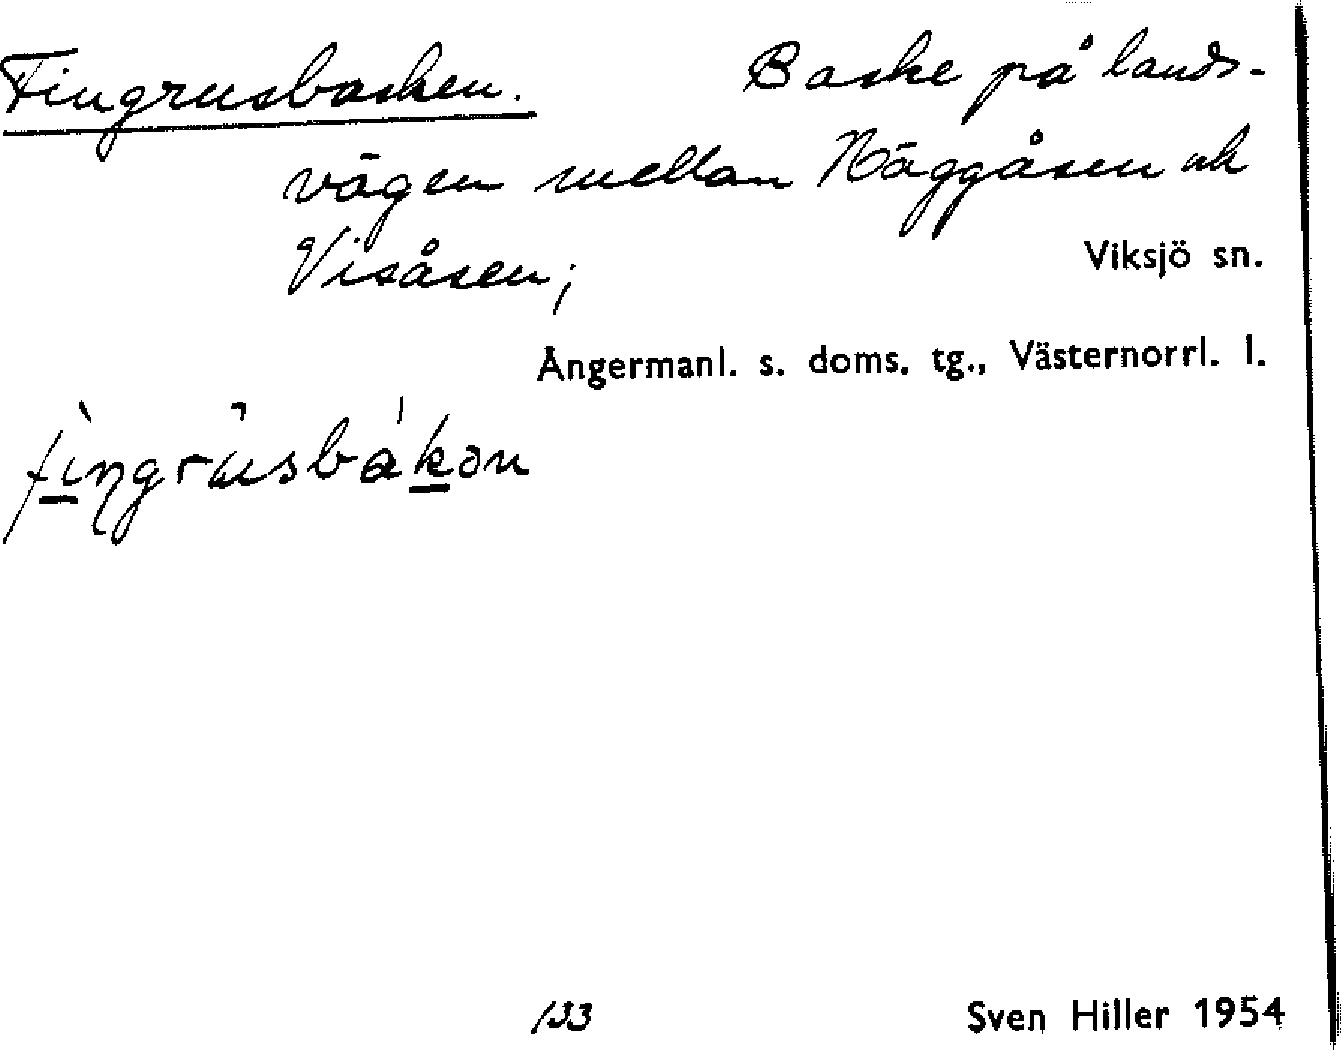 Fingrusbasken. Baske på lands-
vägen mellan Häggåsen och
Visåsen;
Viksjö sn.
Ångermanl. s. doms. tg., Västernorrl. l.
fìŋgrúsbákən
133
Sven Hiller 1954